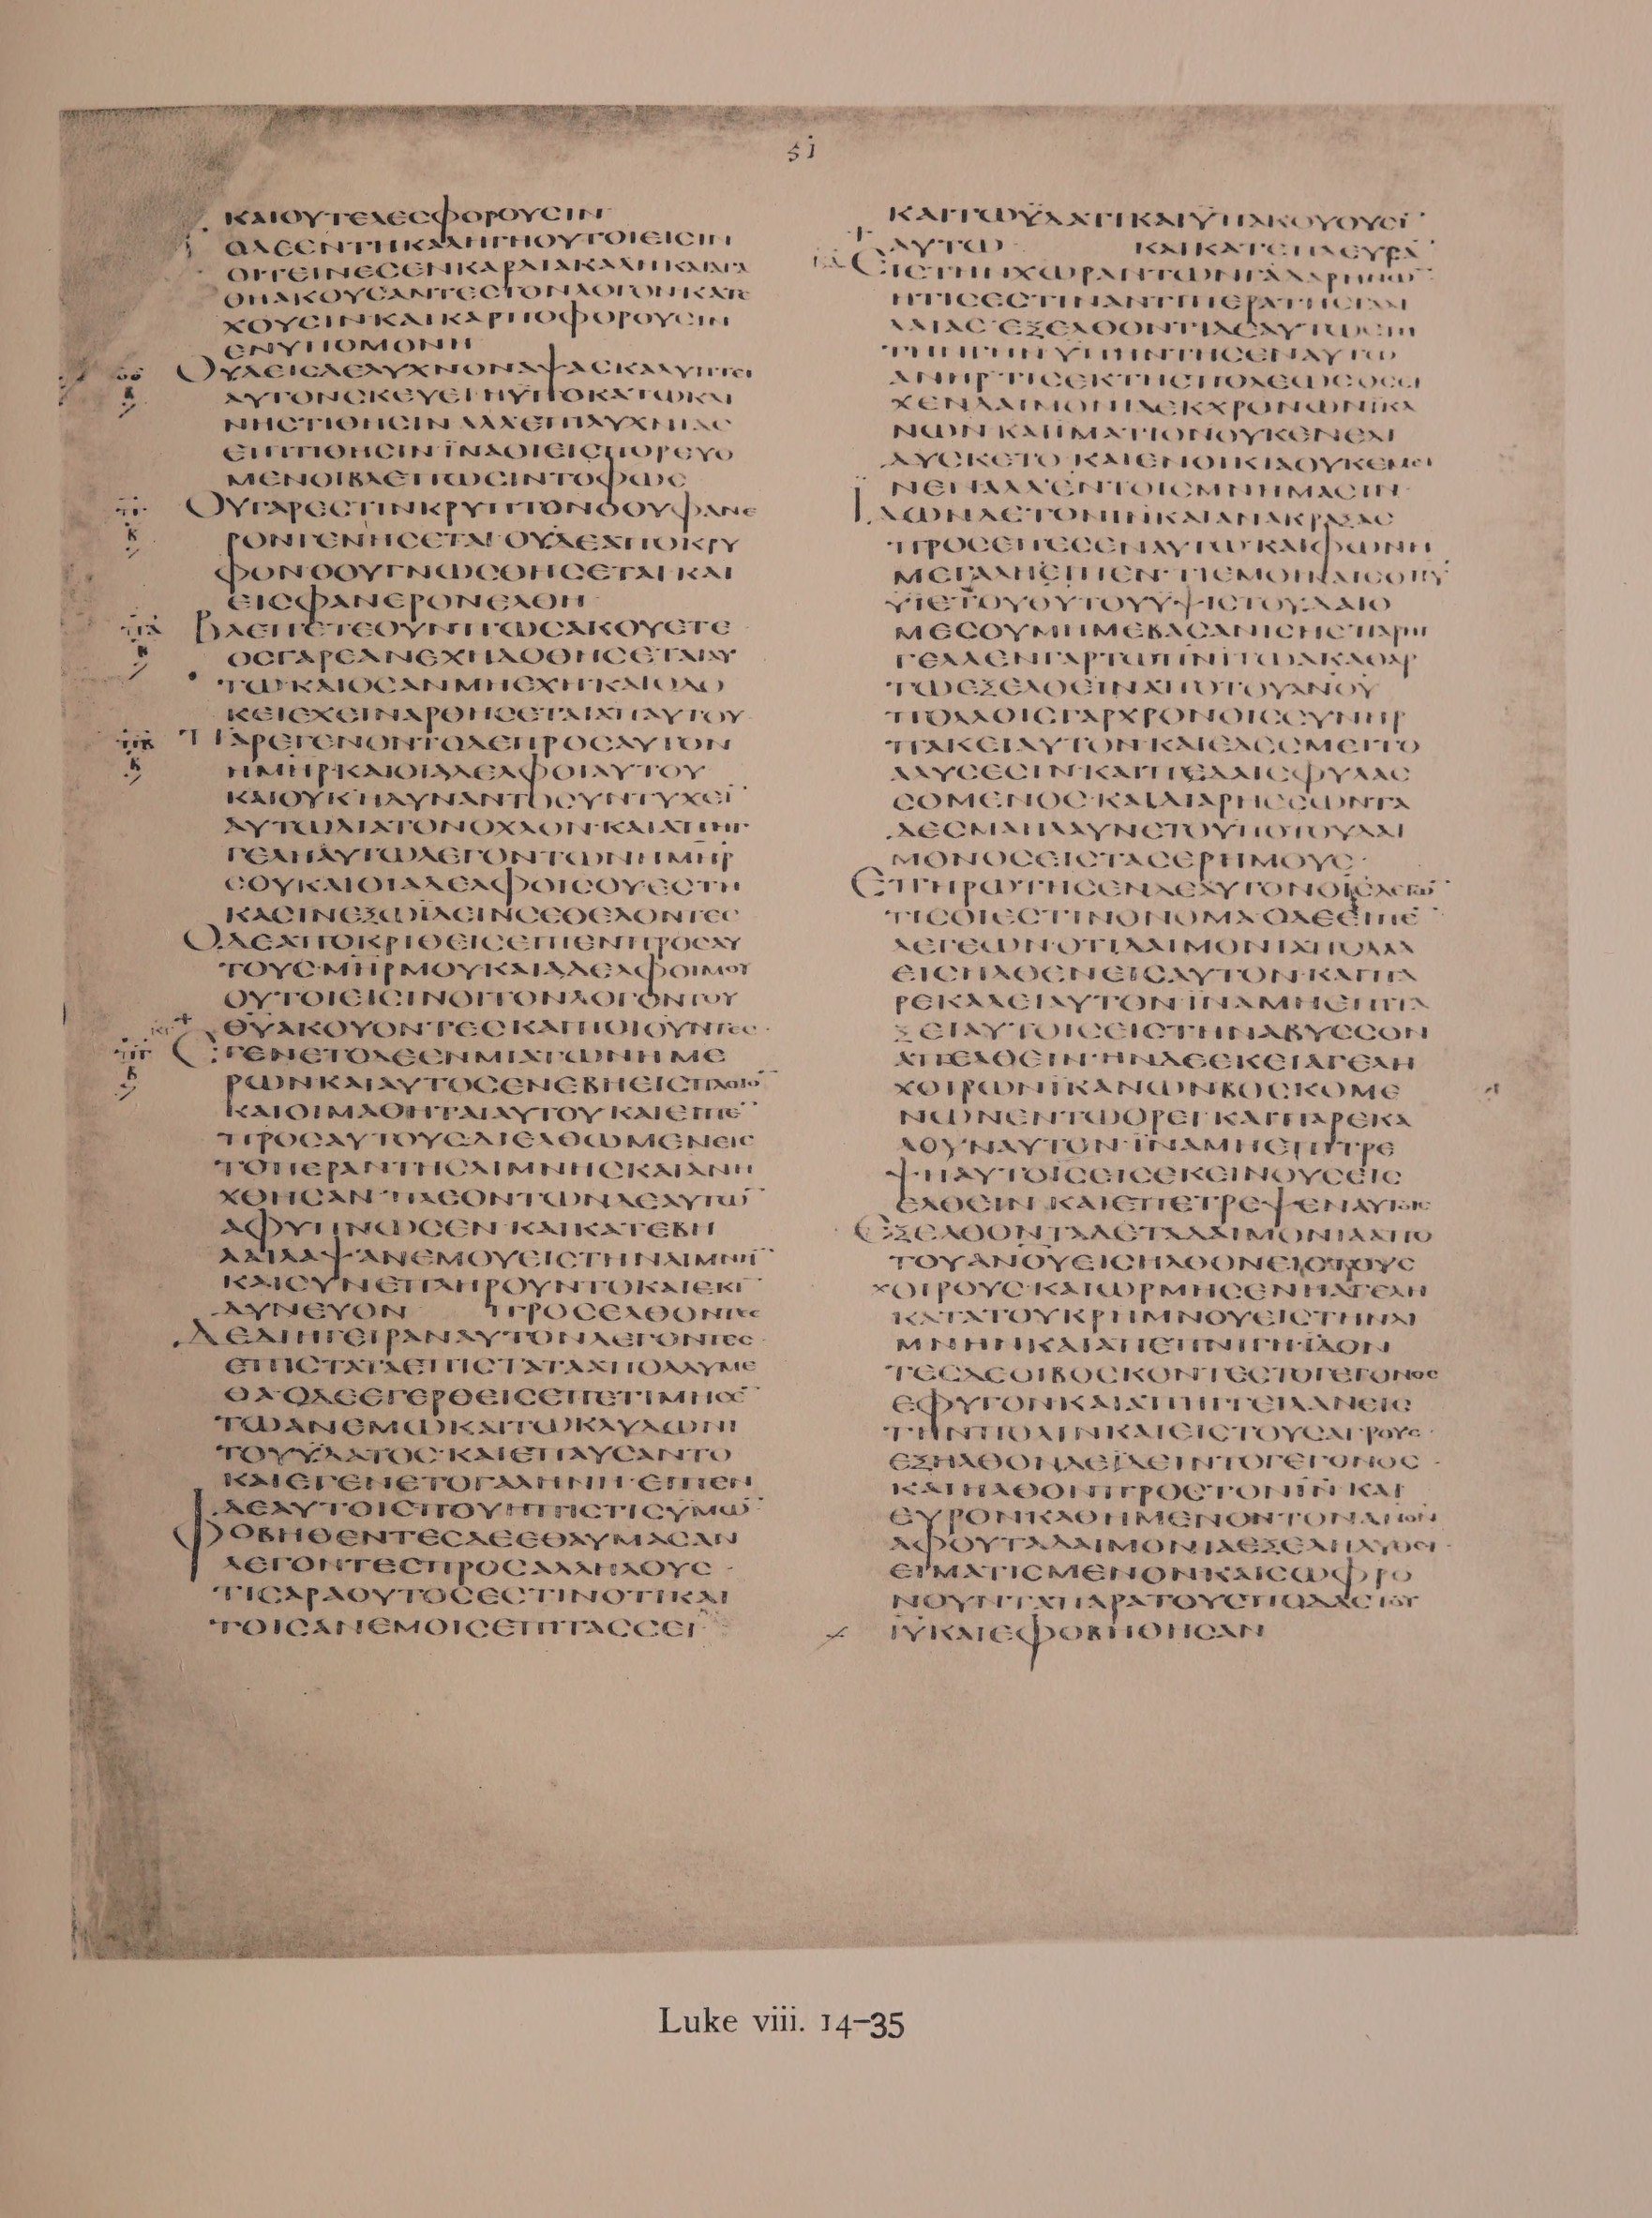 51
ΚΑΙΟΥΤΕΛΕΣΦΟΡΟΥΣΙΝ
ΟΔΕΕΝΤΗΚΑΛΗΓΗΟΥΤΟΙΕΙΣΙΝ
ΟΙΤΙΝΕΣΕΝΚΑΡΔΙΑΚΑΛΗΚΑΙΑΓΑ
ΘΗΑΚΟΥΣΑΝΤΕΣΤΟΝΛΟΓΟΝΚΑΤΕ
ΧΟΥΣΙΝΚΑΙΚΑΡΠΟΦΟΡΟΥΣΙΝ
ΕΝΥΠΟΜΟΝΗ
ΟΥΔΕΙΣΔΕΛΥΧΝΟΝΑΨΑΣΚΑΛΥΠΤΕΙ
ΑΥΤΟΝΣΚΕΥΕΙΗΥΠΟΚΑΤΩΚΛΙ
ΝΗΣΤΙΘΗΣΙΝΑΛΛΕΠΙΛΥΧΝΙΑΣ
ΕΠΙΤΙΘΗΣΙΝΪΝΑΟΙΕΙΣΠΟΡΕΥΟ
ΜΕΝΟΙΒΛΕΠΩΣΙΝΤΟΦΩΣ
ΟΥΓΑΡΕΣΤΙΝΚΡΥΠΤΟΝΟΟΥΦΑΝΕ
ΡΟΝΓΕΝΗΣΕΤΑΙ·ΟΥΔΕΑΠΟΚΡΥ
ΦΟΝΟΟΥΓΝΩΣΘΗΣΕΤΑΙΚΑΙ
ΕΙΣΦΑΝΕΡΟΝΕΛΘΗ
ΒΛΕΠΕΤΕΟΥΝΠΩΣΑΚΟΥΕΤΕ
ΟΣΓΑΡΕΑΝΕΧΗΔΟΘΗΣΕΤΑΙΑΥ
ΤΩ·ΚΑΙΟΣΑΝΜΗΕΧΗ·ΚΑΙΟΔΟ
ΚΕΙΕΧΕΙΝΑΡΘΗΣΕΤΑΙΑΠΑΥΤΟΥ
ΠΑΡΕΓΕΝΟΝΤΟΔΕΠΡΟΣΑΥΤΟΝ
ΗΜΗΡΚΑΙΟΙΑΔΕΛΦΟΙΑΥΤΟΥ
ΚΑΙΟΥΚΗΔΥΝΑΝΤΟΣΥΝΤΥΧΕΙ̅
ΑΥΤΩΔΙΑΤΟΝΟΧΛΟΝ·ΚΑΙΑΠΗΓ
ΓΕΛΗΑΥΤΩΛΕΓΟΝΤΩΝΗΜΗΡ
ΣΟΥΚΑΙΟΙΑΔΕΛΦΟΙΣΟΥΕΣΤΗ
ΚΑΣΙΝΕΞΩΪΔΕΙΝΣΕΘΕΛΟΝΤΕΣ
ΟΔΕΑΠΟΚΡΙΘΕΙΣΕΙΠΕΝΠΡΟΣΑΥ
ΤΟΥΣ·ΜΗΡΜΟΥΚΑΙΑΔΕΛΦΟΙΜΟΥ
ΟΥΤΟΙΕΙΣΙΝΟΙΤΟΝΛΟΓΟΝΤΟΥ
ΘΥΑΚΟΥΟΝΤΕΣΚΑΙΠΟΙΟΥΝΤΕΣ
ΕΓΕΝΕΤΟΔΕΕΝΜΙΑΤΩΝΗΜΕ
ΡΩΝΚΑΙΑΥΤΟΣΕΝΕΒΗΕΙΣΠΛΟΙΟ̅
ΚΑΙΟΙΜΑΘΗΤΑΙΑΥΤΟΥΚΑΙΕΙΠΕ̅
ΠΡΟΣΑΥΤΟΥΣΔΙΕΛΘΩΜΕΝΕΙΣ
ΤΟΠΕΡΑΝΤΗΣΛΙΜΝΗΣΚΑΙΑΝΗ
ΧΘΗΣΑΝ·ΠΛΕΟΝΤΩΝΔΕΑΥΤΩ̅
ΑΦΥΠΝΩΣΕΝ·ΚΑΙΚΑΤΕΒΗ
ΛΑΙΛΑΨΑΝΕΜΟΥΕΙΣΤΗΝΛΙΜΝΗ̅
ΚΑΙΣΥΝΕΠΛΗΡΟΥΝΤΟΚΑΙΕΚΙ̅
ΔΥΝΕΥΟΝ ΠΡΟΣΕΛΘΟΝΤΕΣ
ΔΕΔΙΗΓΕΙΡΑΝΑΥΤΟΝΛΕΓΟΝΤΕΣ
ΕΠΙΣΤΑΤΑΕΠΙΣΤΑΤΑΑΠΟΛΛΥΜΕ
ΘΑ·ΟΔΕΕΓΕΡΘΕΙΣΕΠΕΤΙΜΗΣΕ̅
ΤΩΑΝΕΜΩΚΑΙΤΩΚΛΥΔΩΝΙ
ΤΟΥΫΔΑΤΟΣ·ΚΑΙΕΠΑΥΣΑΝΤΟ
ΚΑΙΕΓΕΝΕΤΟΓΑΛΗΝΗ·ΕΙΠΕΝ
ΔΕΑΥΤΟΙΣΠΟΥΗΠΙΣΤΙΣΫΜΩ̅
ΦΟΒΗΘΕΝΤΕΣΔΕΕΘΑΥΜΑΣΑΝ
ΛΕΓΟΝΤΕΣΠΡΟΣΑΛΛΗΛΟΥΣ
ΤΙΣΑΡΑΟΥΤΟΣΕΣΤΙΝΟΤΙΚΑΙ
ΤΟΙΣΑΝΕΜΟΙΣΕΠΙΤΑΣΣΕΙ
ΚΑΙΤΩΫΔΑΤΙΚΑΙΫΠΑΚΟΥΟΥΣΙ̅
ΑΥΤΩ ΚΑΙΚΑΤΕΠΛΕΥΣΑ̅
ΕΙΣΤΗΝΧΩΡΑΝΤΩΝΓΑΔΑΡΗΝΩ̅
ΗΤΙΣΕΣΤΙΝΑΝΤΙΠΕΡΑΤΗΣΓΑΛΙ
ΛΑΙΑΣ·ΕΞΕΛΘΟΝΤΙΔΕΑΥΤΩΕΠΙ
ΤΗΝΓΗΝΫΠΗΝΤΗΣΕΝΑΥΤΩ
ΑΝΗΡΤΙΣΕΚΤΗΣΠΟΛΕΩΣΟΣΕΙ
ΧΕΝΔΑΙΜΟΝΙΑΕΚΧΡΟΝΩΝΪΚΑ
ΝΩΝΚΑΙΪΜΑΤΙΟΝΟΥΚΕΝΕΔΙ
ΔΥΣΚΕΤΟ·ΚΑΙΕΝΟΙΚΙΑΟΥΚΕΜΕΙ
ΝΕΝΑΛΛΕΝΤΟΙΣΜΝΗΜΑΣΙΝ
ΙΔΩΝΔΕΤΟΝΙΝΚΑΙΑΝΑΚΡΑΞΑΣ
ΠΡΟΣΕΠΕΣΕΝΑΥΤΩ·ΚΑΙΦΩΝΗ
ΜΕΓΑΛΗΕΙΠΕΝ·ΤΙΕΜΟΙΚΑΙΣΟΙΙΥ
ΥΙΕΤΟΥΘΥΤΟΥΥΨΙΣΤΟΥ·ΔΑΙΟ
ΜΕΣΟΥΜΗΜΕΒΑΣΑΝΙΣΗΣ·ΠΑΡΗ
ΓΕΛΛΕΝΓΑΡΤΩΠΝΙΤΩΑΚΑΘΑΡ
ΤΩΕΞΕΛΘΕΙΝΑΠΟΤΟΥΑΝΟΥ
ΠΟΛΛΟΙΣΓΑΡΧΡΟΝΟΙΣΣΥΝΗΡ
ΠΑΚΕΙΑΥΤΟΝ·ΚΑΙΕΔΕΣΜΕΙΤΟ
ΑΛΥΣΕΣΙΝΚΑΙΠΕΔΑΙΣΦΥΛΑΣ
ΣΟΜΕΝΟΣ·ΚΑΙΔΙΑΡΗΣΣΩΝΤΑ
ΔΕΣΜΑΗΛΑΥΝΕΤΟΥΠΟΤΟΥΔΑΙ
ΜΟΝΟΣΕΙΣΤΑΣΕΡΗΜΟΥΣ
ΕΠΗΡΩΤΗΣΕΝΔΕΑΥΤΟΝΟΙΣΛΕΓΩ̅
ΤΙΣΟΙΕΣΤΙΝΟΝΟΜΑ·ΟΔΕΕΙΠΕ̅
ΛΕΓΕΩΝ·ΟΤΙΔΑΙΜΟΝΙΑΠΟΛΛΑ
ΕΙΣΗΛΘΕΝΕΙΣΑΥΤΟΝ·ΚΑΙΠΑ
ΡΕΚΑΛΕΙΑΥΤΟΝΪΝΑΜΗΕΠΙΤΑ
ΞΕΙΑΥΤΟΙΣΕΙΣΤΗΝΑΒΥΣΣΟΝ
ΑΠΕΛΘΕΙΝ·ΗΝΔΕΕΚΕΙΑΓΕΛΗ
ΧΟΙΡΩΝΪΚΑΝΩΝΒΟΣΚΟΜΕ
ΝΩΝΕΝΤΩΟΡΕΙ·ΚΑΙΠΑΡΕΚΑ
ΛΟΥΝΑΥΤΟΝ·ΪΝΑΜΗΕΠΙΤΡΕ
ΨΗΑΥΤΟΙΣΕΙΣΕΚΕΙΝΟΥΣΕΙΣ
ΕΛΘΕΙΝ·ΚΑΙΕΠΕΤΡΕΨΕΝΑΥΤΟΙΣ
ΕΞΕΛΘΟΝΤΑΔΕΤΑΔΑΙΜΟΝΙΑΑΠΟ
ΤΟΥΑΝΟΥΕΙΣΗΛΘΟΝΕΙΣΤΟΥΣ
ΧΟΙΡΟΥΣ·ΚΑΙΩΡΜΗΣΕΝΗΑΓΕΛΗ
ΚΑΤΑΤΟΥΚΡΗΜΝΟΥΕΙΣΤΗΝΛΙ
ΜΝΗΝΚΑΙΑΠΕΠΝΙΓΗ·ΪΔΟΝ
ΤΕΣΔΕΟΙΒΟΣΚΟΝΤΕΣΤΟΓΕΓΟΝΟΣ
ΕΦΥΓΟΝΚΑΙΑΠΗΓΓΕΙΛΑΝΕΙΣ
ΤΗΝΠΟΛΙΝΚΑΙΕΙΣΤΟΥΣΑΓΡΟΥΣ
ΕΞΗΛΘΟΝΔΕΪΔΕΙΝΤΟΓΕΓΟΝΟΣ
ΚΑΙΗΛΘΟΝΠΡΟΣΤΟΝΙΝ·ΚΑΙ
ΕΥΡΟΝΚΑΘΗΜΕΝΟΝΤΟΝΑΝΟΝ
ΑΦΟΥΤΑΔΑΙΜΟΝΙΑΕΞΕΛΗΛΥΘΕΙ
ΕΙΜΑΤΙΣΜΕΝΟΝΚΑΙΣΩΦΡΟ
ΝΟΥΝΤΑΠΑΡΑΤΟΥΣΠΟΔΑΣΤΟΥ
ΙΥΚΑΙΕΦΟΒΗΘΗΣΑΝ
Luke viii. 14–35